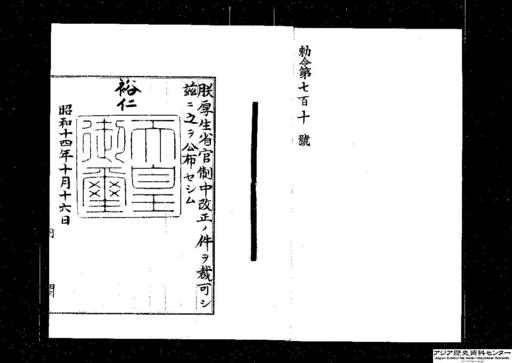 勅令第七百十號
朕厚生省官制中改正ノ件ヲ裁可シ
茲ニ之ヲ公布セシム
裕仁
天皇
御璽
昭和十四年十月十六日
アジア歴史資料センター
Japan Center for Asian Historical Records